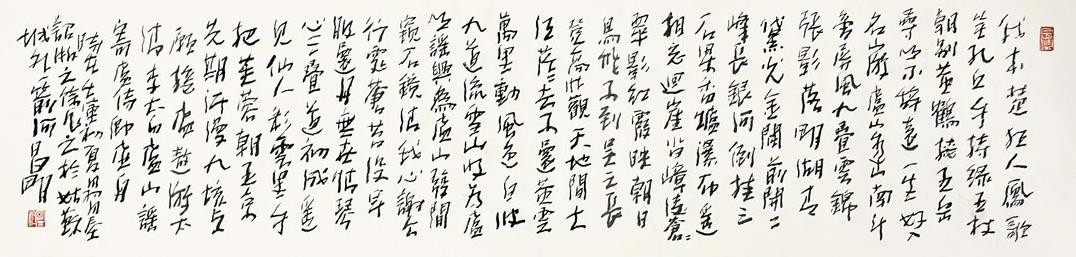 我本楚狂人鳳歌
笑孔丘手持綠玉杖
朝别黄鶴樓五岳
尋仙不辭遠一生好入
名山游廬山秀出南斗
旁屏風九疊雲錦
張影落明湖青
黛光金闕前開二
峰長銀河倒挂三
石梁香爐瀑布遥
相望迴崖沓嶂凌蒼〻
翠影紅霞映朝日
鳥飛不到吴天長
登高壯觀天地間大
江茫〻去不還黄雲
萬里動風色白波
九道流雪山好為廬
山謡興為廬山發閒
窺石鏡清我心謝公
行處蒼苔没早
服還丹無世情琴
心三疊道初成遥
見仙人彩雲里手
把芙蓉朝玉京
先期汗漫九垓上
願接盧敖游太
清李太白廬山謡
寄盧侍御虚舟
時在初夏
於姑蘇
城外